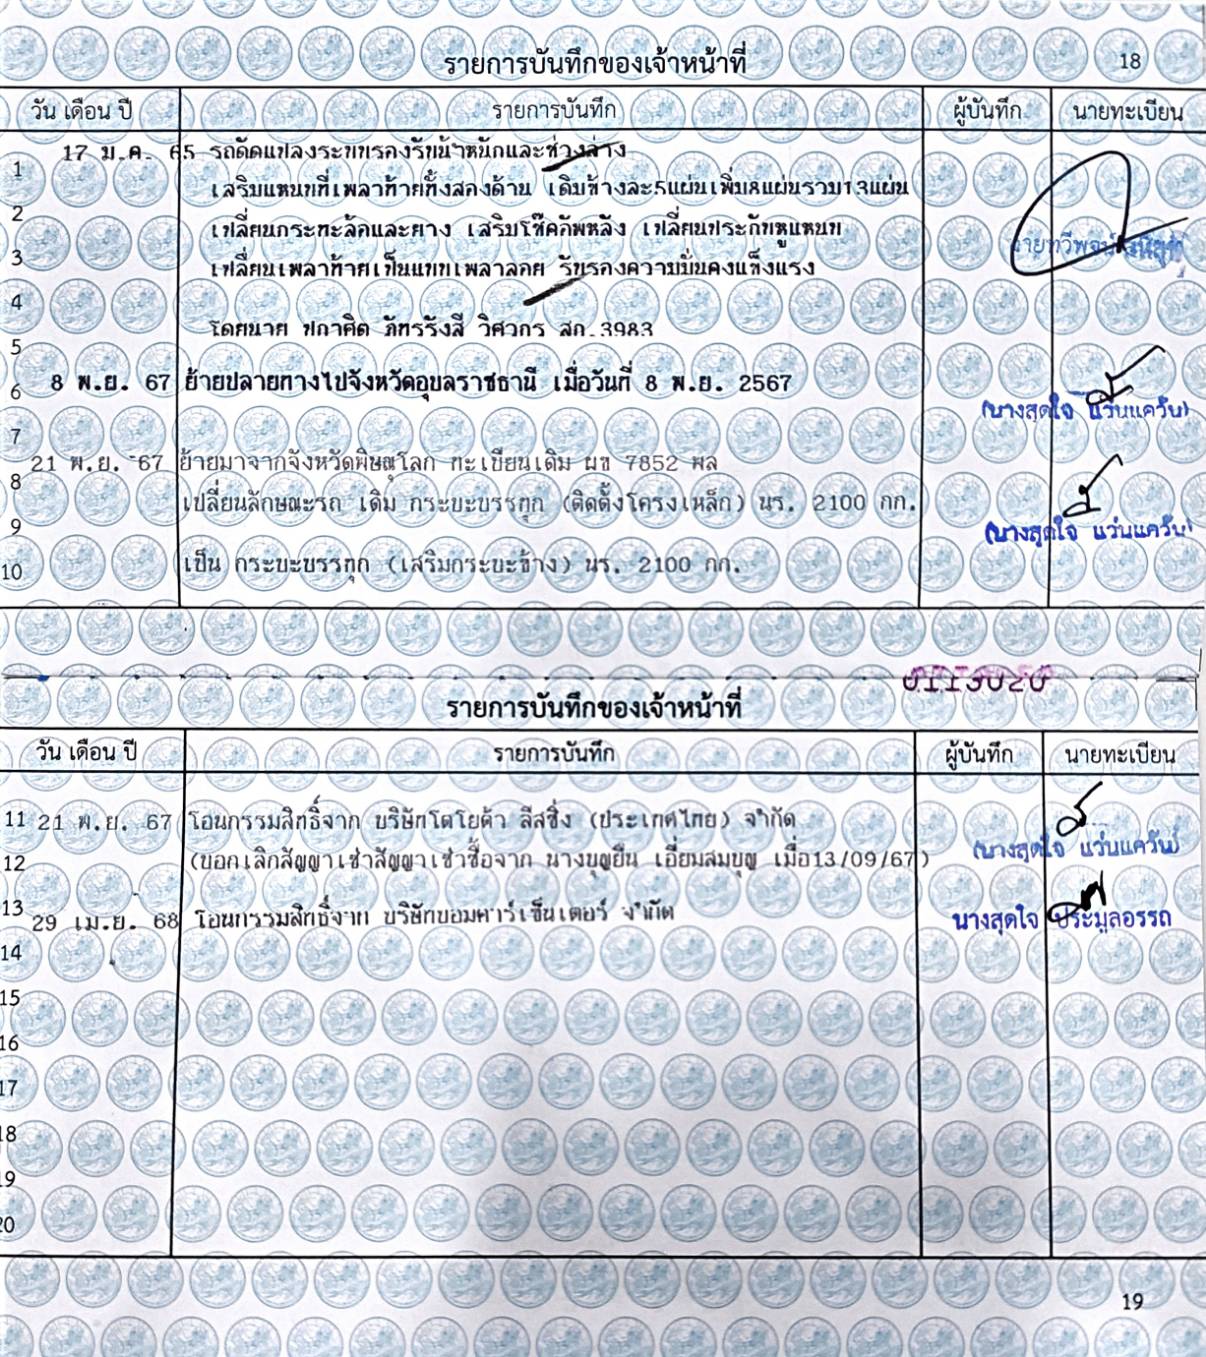 รายการบันทึกของเจ้าหน้าที่ 18
วัน เดือน ปี รายการบันทึก ผู้บันทึก นายทะเบียน
1 17 ม.ค. 65 รถดัดแปลงระบบรองรับน้ำหนักและช่วงล่าง
2 เสริมแหนบที่เพลาท้ายทั้งสองด้าน เดิมข้างละ5แผ่นเพิ่ม8แผ่นรวม13แผ่น
3 เปลี่ยนกระทะล้อและยาง เสริมโช๊คอัพหลัง เปลี่ยนประกับหูแหนบ
4 เปลี่ยนเพลาท้ายเป็นแบบเพลาลอย รับรองความมั่นคงแข็งแรง
5 โดยนาย ภัทรรังสี วิศวกร สก.3983
6 8 พ.ย. 67 ย้ายปลายทางไปจังหวัดอุบลราชธานี เมื่อวันที่ 8 พ.ย. 2567
(นางสุดใจ แว่นแคว้น)
7
8 21 พ.ย. 67 ย้ายมาจากจังหวัดพิษณุโลก ทะเบียนเดิม ผข 7852 พล
9 เปลี่ยนลักษณะรถ เดิม กระบะบรรทุก (ติดตั้งโครงเหล็ก) นร. 2100 กก.
(นางสุดใจ แว่นแคว้น)
10 เป็น กระบะบรรทุก (เสริมกระบะข้าง) นร. 2100 กก.
0113020
รายการบันทึกของเจ้าหน้าที่
วัน เดือน ปี รายการบันทึก ผู้บันทึก นายทะเบียน
11 21 พ.ย. 67 โอนกรรมสิทธิ์จาก บริษัทโตโยต้า ลีสซิ่ง (ประเทศไทย) จำกัด
12 (บอกเลิกสัญญาเช่าสัญญาเช่าซื้อจาก นางบุญยืน เอี่ยมสมบุญ เมื่อ13/09/67) (นางสุดใจ แว่นแคว้น)
13 29 เม.ย. 68 โอนกรรมสิทธิ์จาก บริษัทบอมคาร์เซ็นเตอร์ จำกัด นางสุดใจ ประมูลอรรถ
14
15
16
17
18
19
20
19